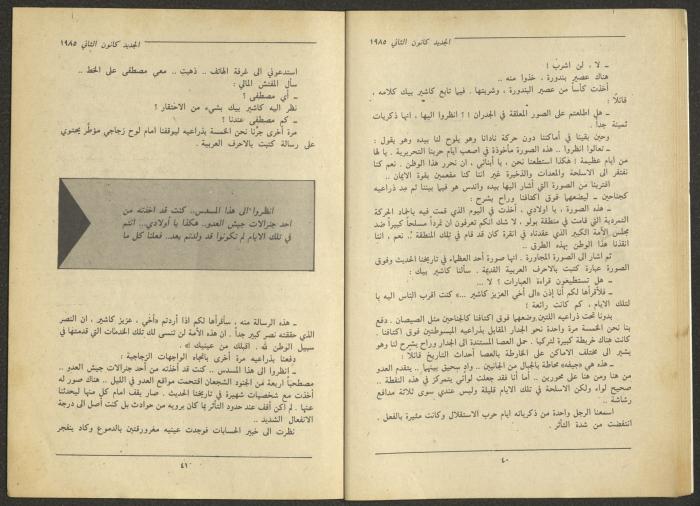 الجديد كانون الثاني ١٩٨٥
ـ لا ، لن اشرب !
هناك عصير بندورة ، خذوا منه ..
أخذت كأساً من عصير البندورة ، وشربتها . فيما تابع كاشير بيك كلامه ،
قائلاً :
ـ هل اطلعتم على الصور المعلقة في الجدران ! ! انظروا اليها ، انها ذكريات
ثمينة جداً .
وحين بقينا في أماكننا دون حركة نادانا وهو يلوح لنا بيده وهو يقول :
ـ تعالوا انظروا .. هذه الصورة مأخوذة في اصعب ايام حربنا التحريرية . يا لها
من ايام عظيمة ! هكذا استطعنا نحن ، يا أبنائي ، ان نحرر هذا الوطن . نعم كنا
نفتقر الى الاسلحة والمعدات والذخيرة غير اننا كنا مفعمين بقوة الايمان ..
اقتربنا من الصورة التي أشار اليها بيده واندس هو فيما بيننا ثم مد ذراعيه
كجناحين ـ ليضعهما فوق اكتافنا وراح يشرح :
ـ هذه الصورة ، يا اولادي ، أخذت في اليوم الذي قمت فيه باخماد الحركة
التمردية التي قامت في منطقة بولو . لا شك انكم تعرفون ان تمرداً مسلحاً كبيراً ضد
مجلس الأمة الكبير الذي عقدناه في انقرة كان قد قام في تلك المنطقة . نعم ، اننا
انقذنا هذا الوطن بهذه الطرق ..
ثم اشار الى الصورة المجاورة . انها صورة أحد العظماء في تاريخنا الحديث وفوق
الصورة عبارة كتبت بالاحرف العربية القديمة . سألنا كاشير بيك :
ـ هل تستطيعون قراءة العبارات ؟ لا ...
ـ فلأقرأها لكم أنا إذن «الى أخي العزيز كاشير ...» كنت اقرب الناس اليه يا
لتلك الايام ، كم كانت رائعة :
بدونا تحت ذراعيه اللتين وضعهما فوق اكتافنا كالجناحين مثل الصيصان . دفع
بنا نحن الخمسة مرة واحدة نحو الجدار المقابل بذراعيه المبسوطتين فوق اكتافنا .
كانت هناك خريطة كبيرة لتركيا . حمل العصا المستندة الى الجدار وراح يشرح لنا وهو
يشير الى مختلف الاماكن على الخارطة بالعصا أحداث التاريخ قائلاً :
ـ هذه هي محاطة بالجبال من الجانبين .. واد سحيق بينهما .. يتقدم العدو
من هنا ومن هنا على محورين .. أما أنا فقد جعلت لوائي يتمركز في هذه النقطة ..
صحيح لواء ولكن الاسلحة في تلك الايام قليلة وليس عندي سوى ثلاثة مدافع
رشاشة ..
اسمعنا الرجل واحدة من ذكرياته ايام حرب الاستقلال وكانت مثيرة بالفعل .
انتفضت من شدة التأثر .
٤٠
الجديد كانون الثاني ١٩٨٥
استدعوني الى غرفة الهاتف .. ذهبت .. معي مصطفى على الخط ..
سأل المفتش المالي :
ـ أي مصطفى ؟
نظر اليه كاشير بيك بشيء من الاحتقار ؟
ـ كم مصطفى عندنا !
مرة أخرى جرّنا نحن الخمسة بذراعيه ليوقفنا امام لوح زجاجي مؤطّر يحتوي
على رسالة كتبت بالاحرف العربية .
انظروا الى هذا المسدس.. كنت قد اخذته من
احد جنرالات جيش العدو.. هكذا يا أولادي.. انتم
في تلك الايام لم تكونوا قد ولدتم بعد.. فعلنا كل ما
ـ هذه الرسالة منه . سأقرأها لكم اذا أردتم «أخي ، عزيز كاشير ، ان النصر
الذي حققته نصر كبير جداً . ان هذه الأمة لن تنسى لك تلك الخدمات التي قدمتها في
سبيل الوطن لله . اقبلك من عينيك » .
دفعنا بذراعيه مرة أخرى باتجاه الواجهات الزجاجية :
ـ انظروا الى هذا المسدس .. كنت قد أخذته من أحد جنرالات جيش العدو ..
مصطحباً اربعة من الجنود الشجعان اقتحمت مواقع العدو في الليل .. هناك صور له
أخذت مع شخصيات شهيرة في تاريخنا الحديث . صار يقف امام كل منها ليحدثنا
عنها . لم أكن أقف عند حدود التأثر بما كان يرويه من حوادث بل كنت أصل الى درجة
الانفعال الشديد ..
نظرت الى خبير الحسابات فوجدت عينيه مغرورقتين بالدموع وكاد ينفجر
٤١